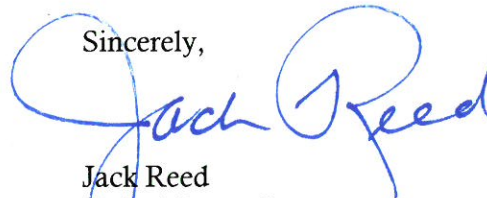 Sincerely,
Jack Reed
Jack Reed